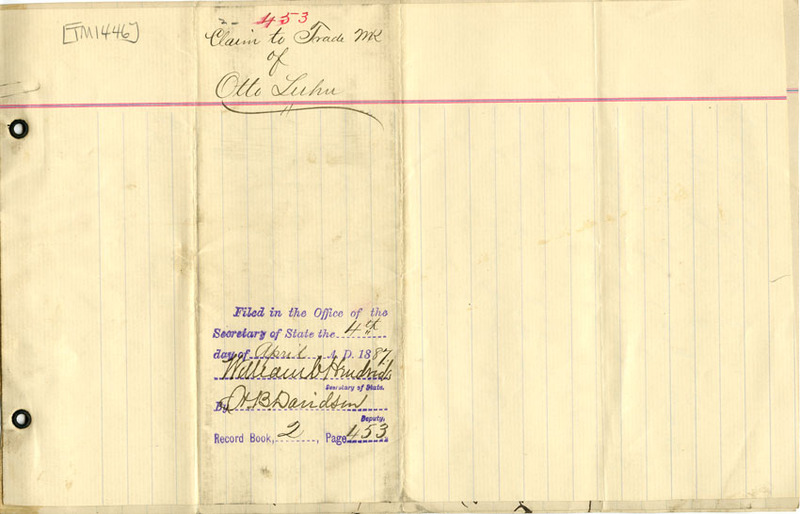 [TM1446]
2- 453
Claim to Trade MK
of
Otto Luhn
Filed in the Office of the
Secretary of State the 4th
day of April A. D. 1887.
William C Hendricks
Secretary of State.
By H.B Davidson
Deputy.
Record Book, 2, Page 453.